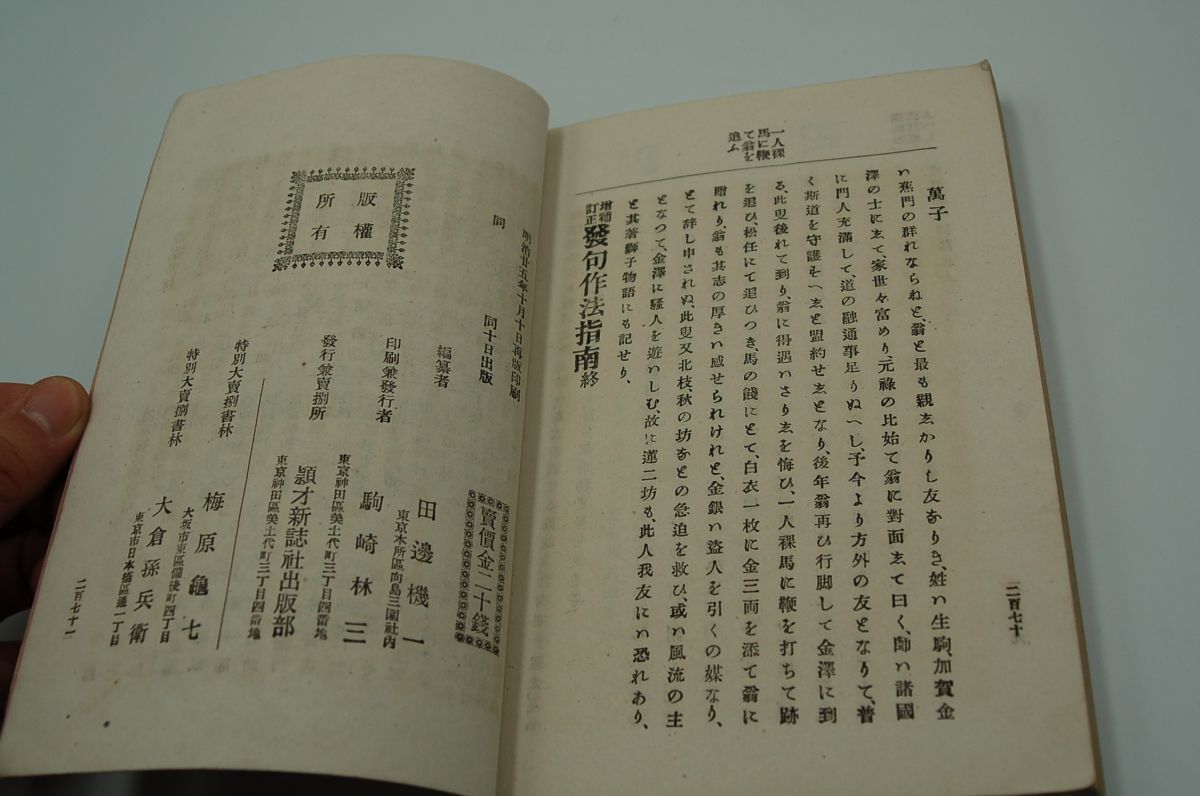 二百七十
一人裸
馬に鞭
て翁を
追ふ
萬子
ハ蕉門の群れならねと、翁と最も親ゑかりし友なりき、姓ハ生駒、加賀金
澤の士にゑて、家世々富めり、元祿の比始て翁に對面ゑて曰く、師ハ諸國
に門人充滿して、道の融通事足りぬへし、予今より方外の友となりて、普
く斯道を守護せハゑと盟約せゑとなり、後年翁再ひ行脚して金澤に到
る、此叟後れて到り、翁に得遇ハさりゑを悔ひ、一人裸馬に鞭を打ちて跡
を追ひ、松任にて追ひつき、馬の餞にとて、白衣一枚に金三両を添て翁に
贈れり、翁も其志の厚きハ感せられけれと、金銀ハ盗人を引くの媒なり、
とて辞し申されぬ、此叟又北枝、秋の坊などの急迫を救ひ、或ハ風流の主
となつて、金澤に騒人を遊ハしむ、故に蓮二坊も、此人我友にハ恐れあり、
と其著獅子物語にも記せり、
増補
訂正
發句作法指南終
明治廿五年十月十日再版印刷
同 同十日出版
版權
所有
賣價金二十錢
編纂者 田邊機一
東京本所區向島三圍社内
印刷兼發行者 駒崎林三
東京神田區美土代町三丁目四番地
發行兼賣捌所 頴才新誌社出版部
東京神田區美土代町三丁目四番地
特別大賣捌書林 梅原亀七
大坂市東區備後町四丁目
特別大賣捌書林 大倉孫兵衛
東京市日本橋區通一丁目
二百七十一